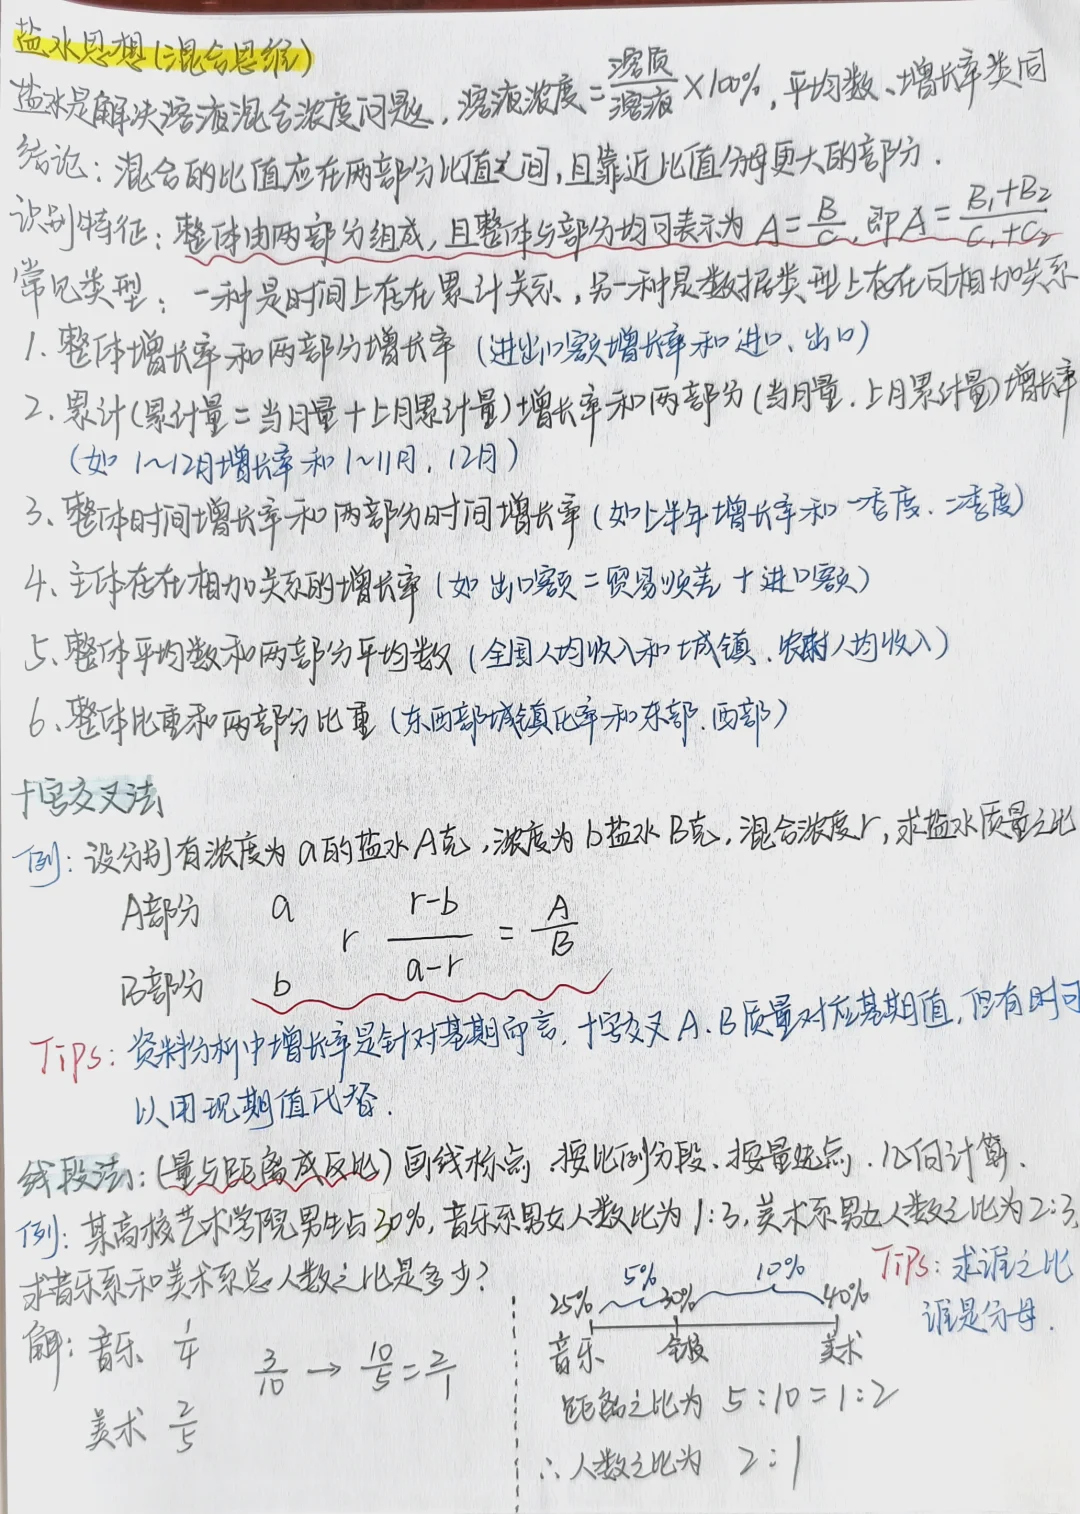 盐水思想(混合思维)
盐水是解决溶液混合浓度问题，溶液浓度=溶质/溶液×100%，平均数、增长率类同
结论：混合的比值应在两部分比值之间，且靠近比值分母更大的部分．
识别特征：整体由两部分组成，且整体与部分均可表示为 A=B/C，即A=(B₁+B₂)/(C₁+C₂)
常见类型：一种是时间上存在累计关系，另一种是数据类型上存在可相加关系
1、整体增长率和两部分增长率（进出口额增长率和进口、出口）
2、累计(累计量=当月量+上月累计量)增长率和两部分(当月量、上月累计量)增长率
（如 1~12月增长率和1~11月、12月）
3、整体时间增长率和两部分时间增长率（如上半年增长率和一季度、二季度）
4、主体存在相加关系的增长率（如 出口额=贸易顺差+进口额）
5、整体平均数和两部分平均数（全国人均收入和城镇、农村人均收入）
6、整体比重和两部分比重（东西部城镇化率和东部、西部）
十字交叉法
例：设分别有浓度为a的盐水A克，浓度为b盐水B克，混合浓度r，求盐水质量之比
A部分 a
r (r-b)/(a-r) = A/B
B部分 b
Tips：资料分析中增长率是针对基期而言，十字交叉A、B质量对应基期值，但有时可
以用现期值代替．
线段法：(量与距离成反比) 画线标点、按比例分段、按量描点、几何计算．
例：某高校艺术学院男生占30%，音乐系男女人数比为1:3，美术系男女人数之比为2:3，
求音乐系和美术系总人数之比是多少？
Tips：求谁之比
谁是分母．
解：音乐 1/4
3/10 → 10/5=2/1
美术 2/5
5% 10%
25% 30% 40%
音乐 全校 美术
距离之比为 5:10=1:2
∴人数之比为 2:1